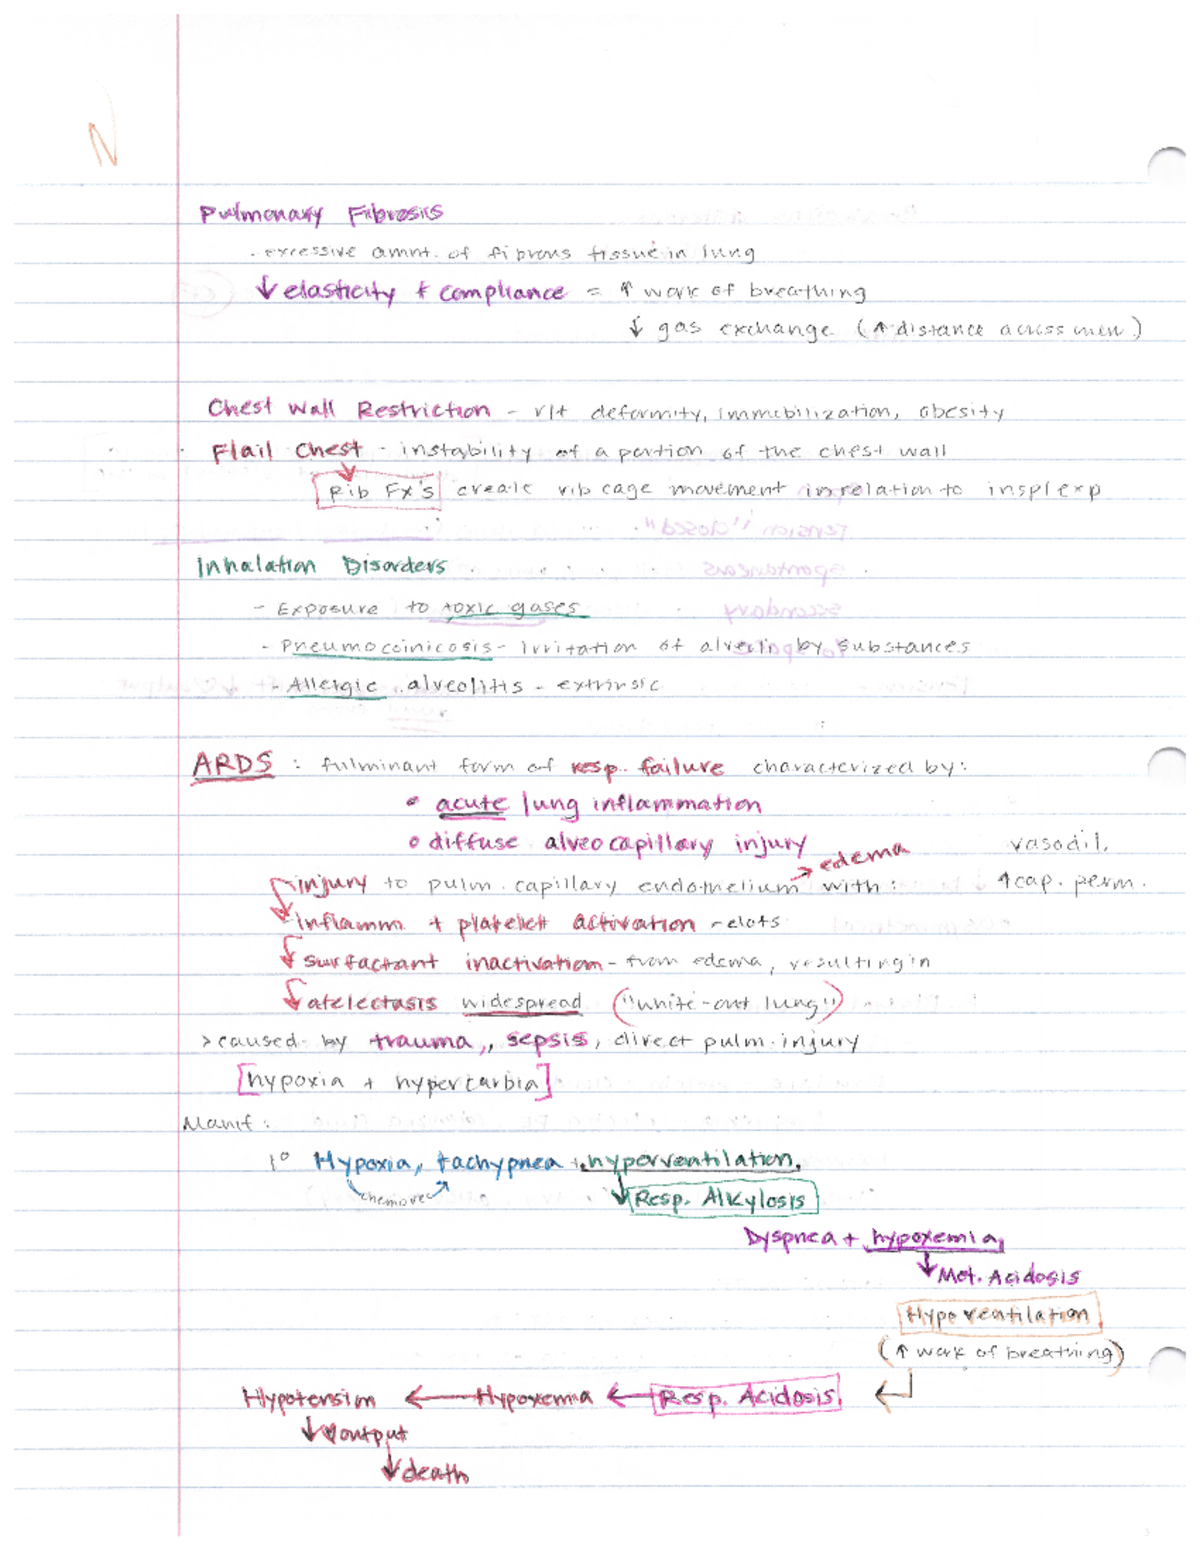 N
Pulmonary Fibrosis
- excessive amnt. of fibrous tissue in lung
↓ elasticity + compliance = ↑ work of breathing
↓ gas exchange (↑ distance across mem.)
Chest Wall Restriction - r/t deformity, immobilization, obesity
Flail Chest - instability of a portion of the chest wall
Rib Fx's create rib cage movement in relation to insp/exp
Inhalation Disorders
- Exposure to toxic gases
- Pneumocoinicosis - irritation of alveoli by substances
- Allergic alveolitis - extrinsic
ARDS : fulminant form of resp. failure characterized by:
• acute lung inflammation
• diffuse alveocapillary injury
→ edema
vasodil,
injury to pulm. capillary endothelium with: ↑cap. perm.
↓ inflamm + platelett activation - clots
↓ surfactant inactivation - from edema, resulting in
↓ atelectasis widespread ("white-out lung")
> caused by trauma, sepsis, direct pulm. injury
[hypoxia + hypercarbia]
Manif:
1° Hypoxia, tachypnea + hyperventilation,
chemorec
↓ Resp. Alkylosis
Dyspnea + hypoxemia,
↓ Met. Acidosis
Hypoventilation
(↑ work of breathing)
Hypotension ← Hypoxemia ← Resp. Acidosis ←
↓ ♥output
↓ death